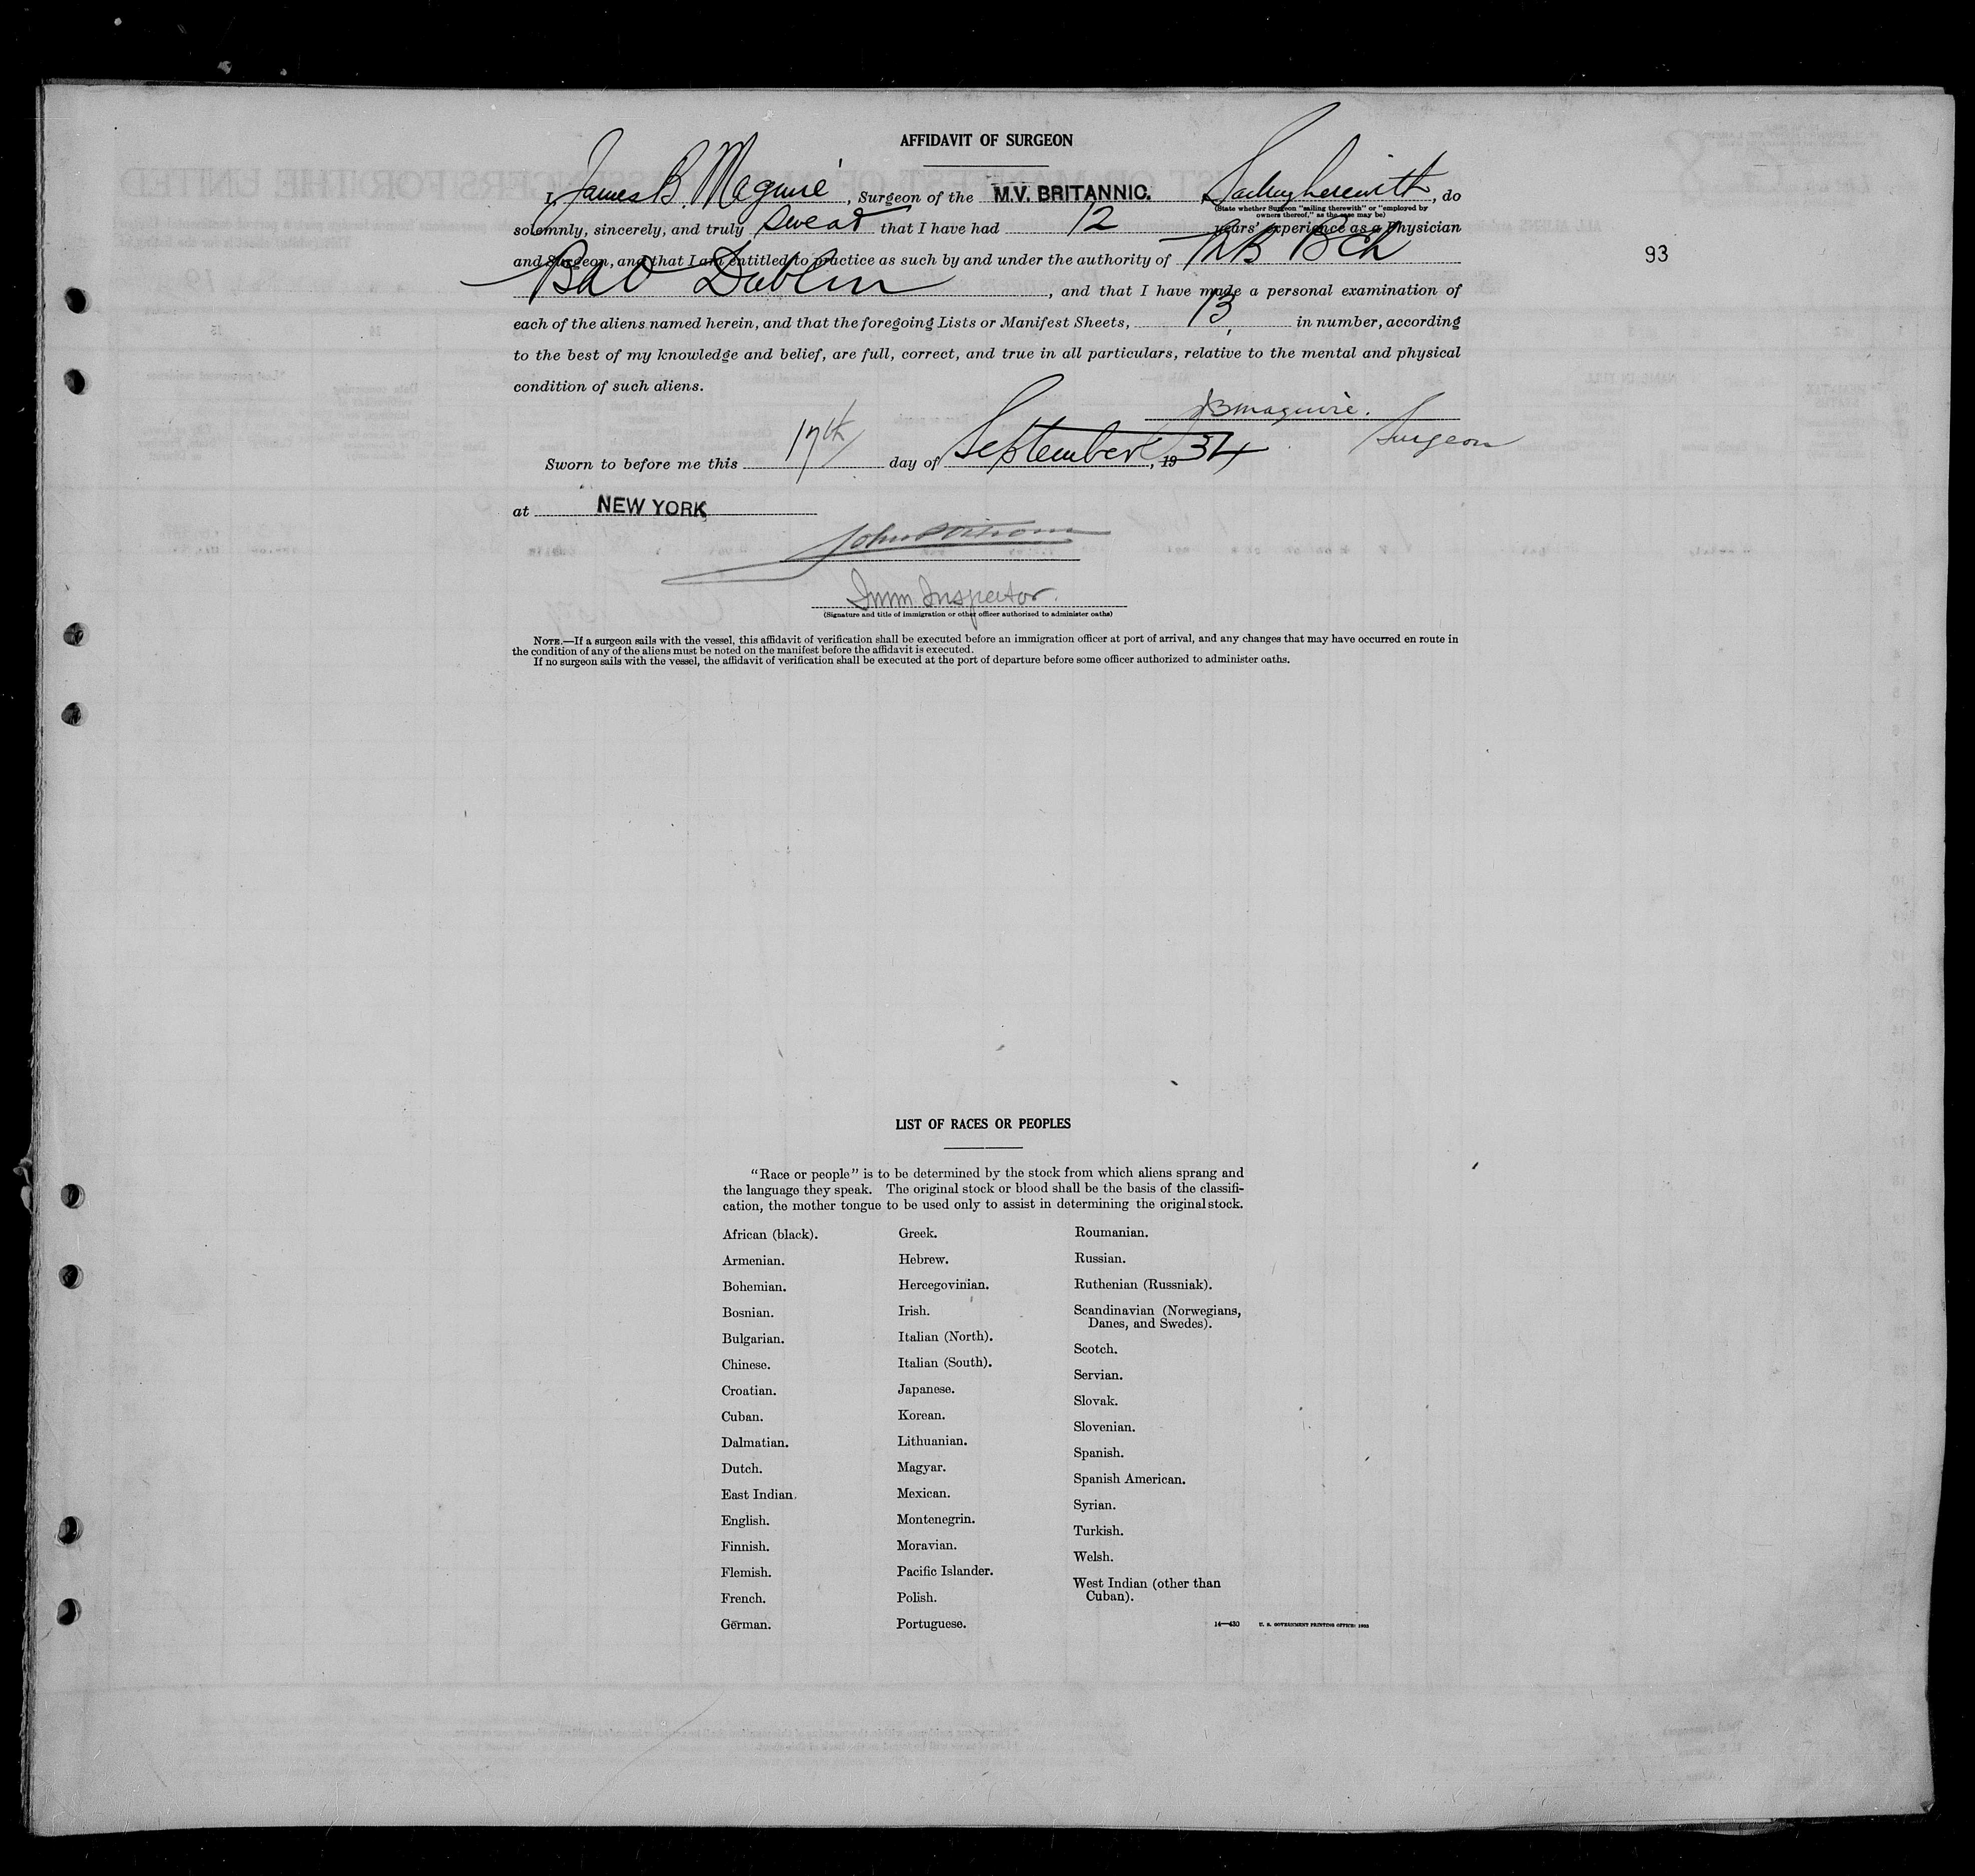 AFFIDAVIT OF SURGEON
I, James B. Maguire, Surgeon of the M.V. BRITANNIC. Sailing therewith, do
(State whether Surgeon "sailing therewith" or "employed by
owners thereof," as the case may be)
solemnly, sincerely, and truly swear that I have had 12 years' experience as a Physician
and Surgeon, and that I am entitled to practice as such by and under the authority of MB BCh
BAO Dublin, and that I have made a personal examination of
93
each of the aliens named herein, and that the foregoing Lists or Manifest Sheets, 13, in number, according
to the best of my knowledge and belief, are full, correct, and true in all particulars, relative to the mental and physical
condition of such aliens.
JBMaguire.
Surgeon
Sworn to before me this 17th day of September, 1934
at NEW YORK
John
Imm. Inspector.
(Signature and title of immigration or other officer authorized to administer oaths)
NOTE.—If a surgeon sails with the vessel, this affidavit of verification shall be executed before an immigration officer at port of arrival, and any changes that may have occurred en route in
the condition of any of the aliens must be noted on the manifest before the affidavit is executed.
If no surgeon sails with the vessel, the affidavit of verification shall be executed at the port of departure before some officer authorized to administer oaths.
LIST OF RACES OR PEOPLES
"Race or people" is to be determined by the stock from which aliens sprang and
the language they speak. The original stock or blood shall be the basis of the classifi-
cation, the mother tongue to be used only to assist in determining the original stock.
African (black).
Armenian.
Bohemian.
Bosnian.
Bulgarian.
Chinese.
Croatian.
Cuban.
Dalmatian.
Dutch.
East Indian.
English.
Finnish.
Flemish.
French.
German.
Greek.
Hebrew.
Hercegovinian.
Irish.
Italian (North).
Italian (South).
Japanese.
Korean.
Lithuanian.
Magyar.
Mexican.
Montenegrin.
Moravian.
Pacific Islander.
Polish.
Portuguese.
Roumanian.
Russian.
Ruthenian (Russniak).
Scandinavian (Norwegians,
Danes, and Swedes).
Scotch.
Servian.
Slovak.
Slovenian.
Spanish.
Spanish American.
Syrian.
Turkish.
Welsh.
West Indian (other than
Cuban).
14—430 U. S. GOVERNMENT PRINTING OFFICE: